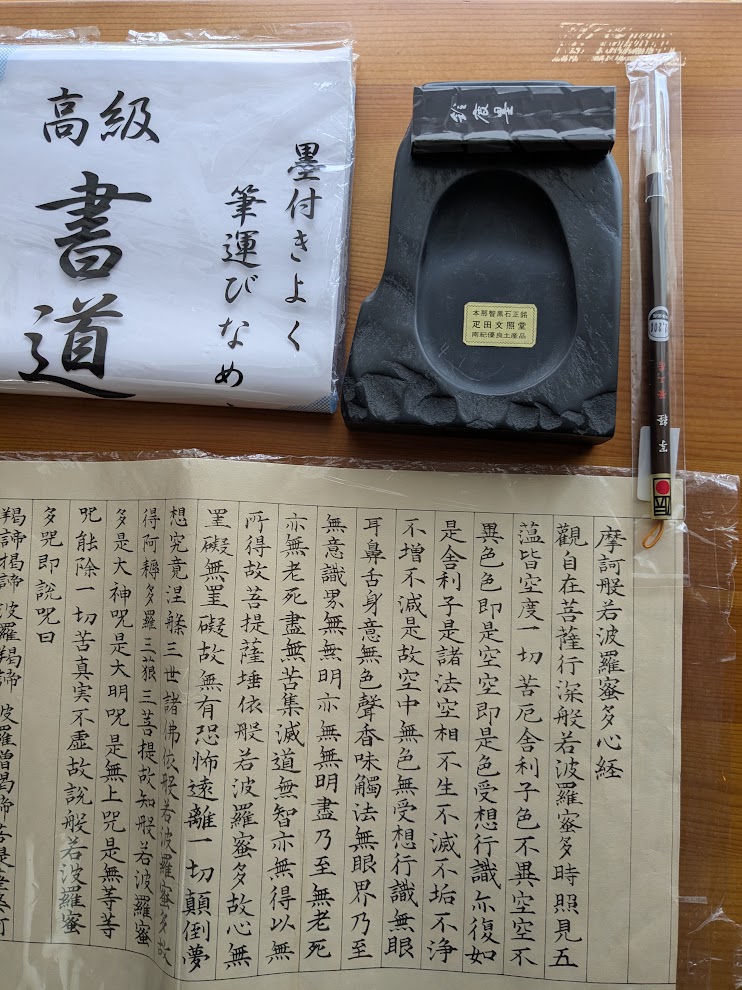 高級
書道
墨付きよく
筆運びなめ
鈴鹿墨
本那智黒石正銘
疋田文照堂
南紀優良土産品
写経
摩訶般若波羅蜜多心経
觀自在菩薩行深般若波羅蜜多時照見五
蘊皆空度一切苦厄舍利子色不異空空不
異色色即是空空即是色受想行識亦復如
是舍利子是諸法空相不生不滅不垢不浄
不増不減是故空中無色無受想行識無眼
耳鼻舌身意無色聲香味觸法無眼界乃至
無意識界無無明亦無無明盡乃至無老死
亦無老死盡無苦集滅道無智亦無得以無
所得故菩提薩埵依般若波羅蜜多故心無
罣礙無罣礙故無有恐怖遠離一切顛倒夢
想究竟涅槃三世諸佛依般若波羅蜜多故
得阿耨多羅三藐三菩提故知般若波羅蜜
多是大神呪是大明呪是無上呪是無等等
呪能除一切苦真実不虚故説般若波羅蜜
多呪即説呪曰
羯諦羯諦波羅羯諦波羅僧羯諦菩提